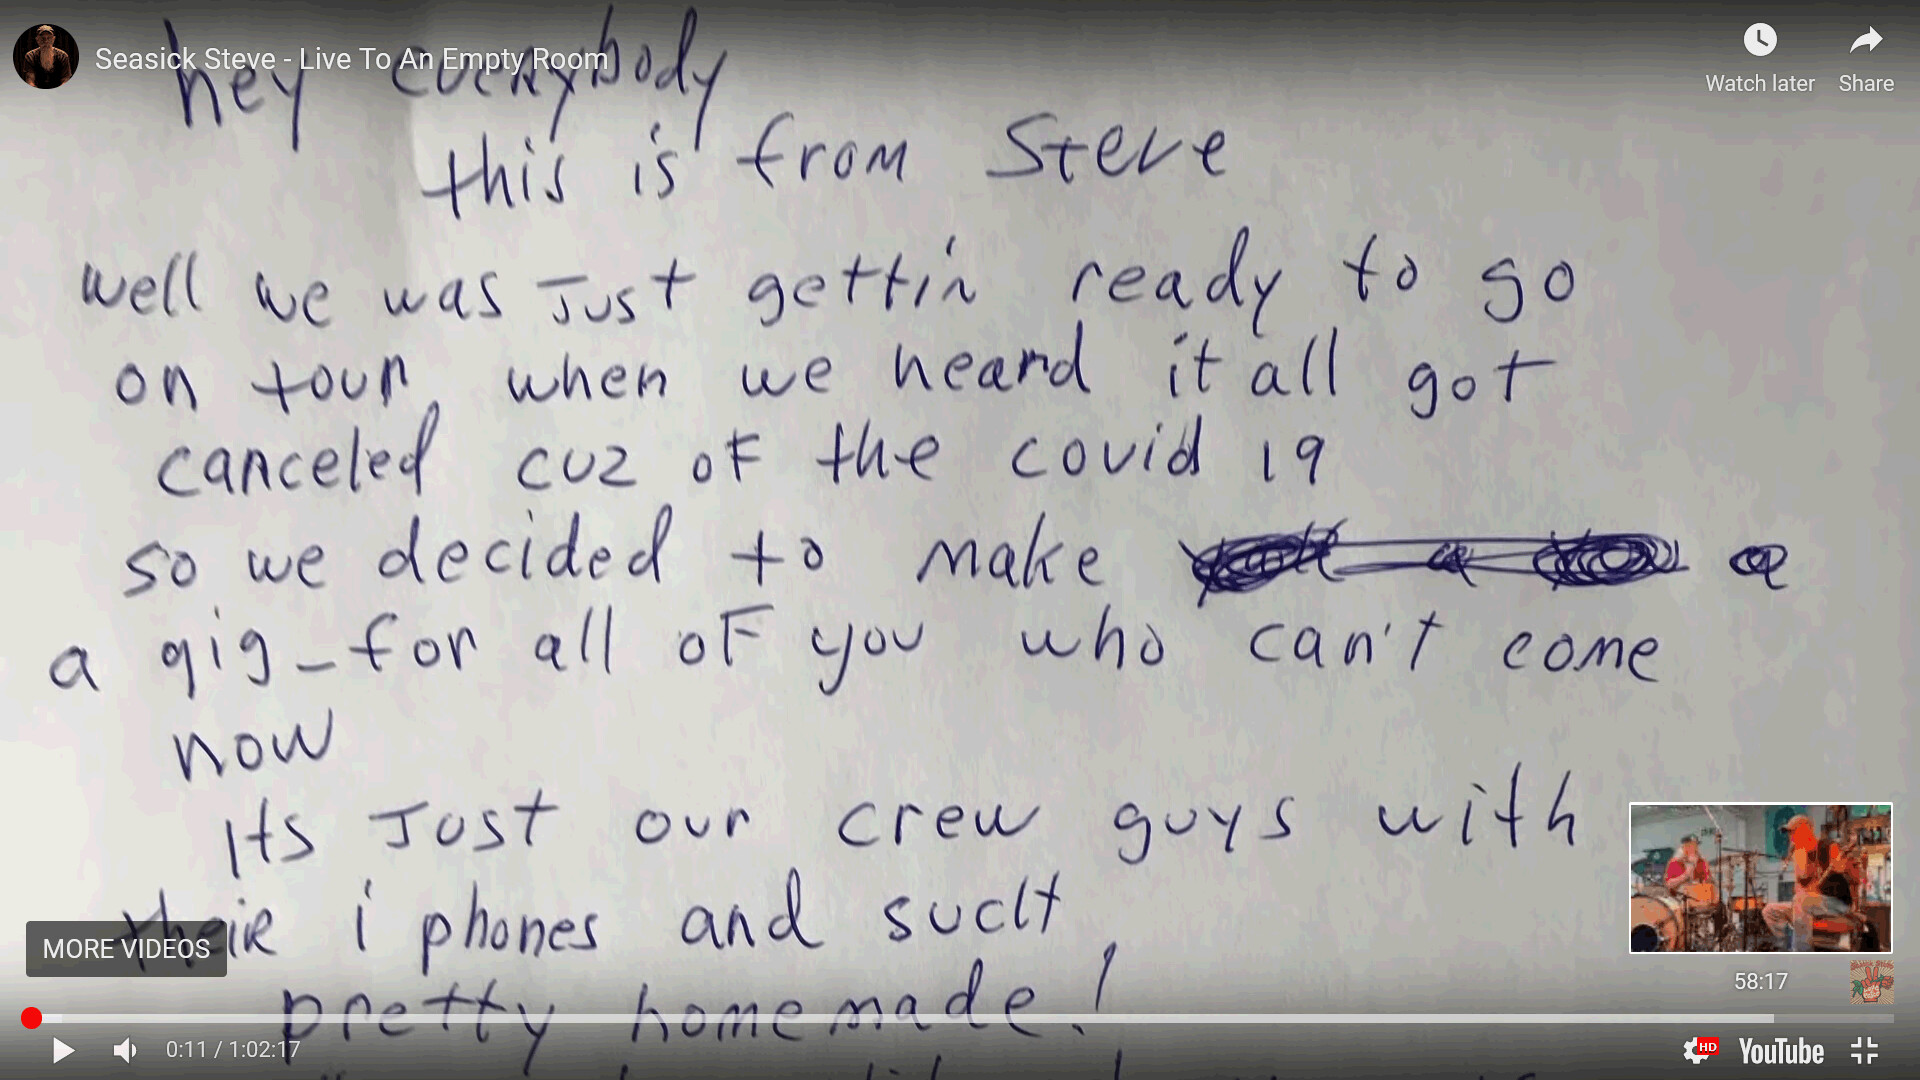 Seasick Steve - Live To An Empty Room
Watch later
Share
hey everybody
this is from Steve
well we was Just gettin ready to go
on tour, when we heard it all got
canceled cuz of the covid 19
so we decided to make
a gig - for all of you who can't come
now
Its Just our crew guys with
their i phones and such
pretty homemade!
MORE VIDEOS
58:17
0:11 / 1:02:17
HD
YouTube